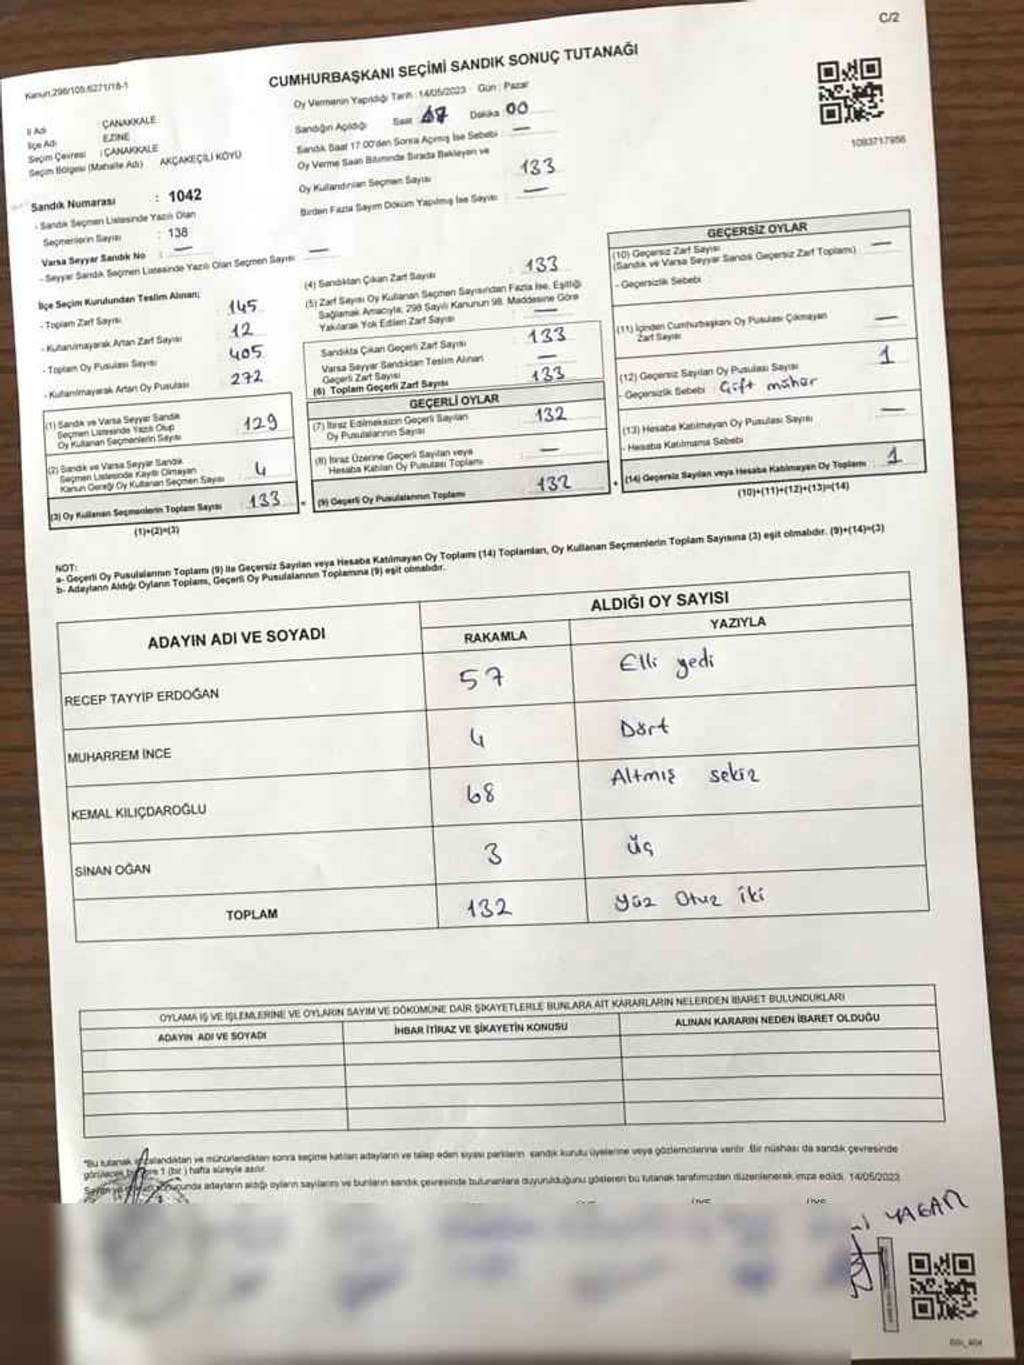 C/2
Kanun:298/105,6271/16-1
CUMHURBAŞKANI SEÇİMİ SANDIK SONUÇ TUTANAĞI
Oy Vermenin Yapıldığı Tarih : 14/05/2023 Gün : Pazar
İl Adı ÇANAKKALE
İlçe Adı EZİNE
Seçim Çevresi : ÇANAKKALE
Seçim Bölgesi (Mahalle Adı) AKÇAKEÇİLİ KÖYÜ
Sandığın Açıldığı Saat 17 Dakika 00
Sandık Saat 17.00'den Sonra Açılmış İse Sebebi —
Oy Verme Saati Bitiminde Sırada Bekleyen ve
Oy Kullandırılan Seçmen Sayısı 133
Birden Fazla Sayım Döküm Yapılmış İse Sayısı —
1093717956
Sandık Numarası : 1042
- Sandık Seçmen Listesinde Yazılı Olan
Seçmenlerin Sayısı : 138
Varsa Seyyar Sandık No : —
- Seyyar Sandık Seçmen Listesinde Yazılı Olan Seçmen Sayısı —
İlçe Seçim Kurulundan Teslim Alınan;
- Toplam Zarf Sayısı : 145
- Kullanılmayarak Artan Zarf Sayısı : 12
- Toplam Oy Pusulası Sayısı : 405
- Kullanılmayarak Artan Oy Pusulası : 272
(1) Sandık ve Varsa Seyyar Sandık
Seçmen Listesinde Yazılı Olup
Oy Kullanan Seçmenlerin Sayısı : 129
(2) Sandık ve Varsa Seyyar Sandık
Seçmen Listesinde Kayıtlı Olmayan
Kanun Gereği Oy Kullanan Seçmen Sayısı : 4
(3) Oy Kullanan Seçmenlerin Toplam Sayısı : 133
(1)+(2)=(3)
(4) Sandıktan Çıkan Zarf Sayısı : 133
(5) Zarf Sayısı Oy Kullanan Seçmen Sayısından Fazla İse, Eşitliği
Sağlamak Amacıyla; 298 Sayılı Kanunun 98. Maddesine Göre
Yakılarak Yok Edilen Zarf Sayısı : —
Sandıkta Çıkan Geçerli Zarf Sayısı : 133
Varsa Seyyar Sandıktan Teslim Alınan
Geçerli Zarf Sayısı : —
(6) Toplam Geçerli Zarf Sayısı : 133
GEÇERLİ OYLAR
(7) İtiraz Edilmeksizin Geçerli Sayılan
Oy Pusulalarının Sayısı : 132
(8) İtiraz Üzerine Geçerli Sayılan veya
Hesaba Katılan Oy Pusulası Toplamı : —
(9) Geçerli Oy Pusulalarının Toplamı : 132
GEÇERSİZ OYLAR
(10) Geçersiz Zarf Sayısı
(Sandık ve Varsa Seyyar Sandık Geçersiz Zarf Toplamı) : —
- Geçersizlik Sebebi
(11) İçinden Cumhurbaşkanı Oy Pusulası Çıkmayan
Zarf Sayısı : —
(12) Geçersiz Sayılan Oy Pusulası Sayısı : 1
- Geçersizlik Sebebi Çift mühür
(13) Hesaba Katılmayan Oy Pusulası Sayısı : —
- Hesaba Katılmama Sebebi
(14) Geçersiz Sayılan veya Hesaba Katılmayan Oy Toplamı : 1
(10)+(11)+(12)+(13)=(14)
NOT:
a- Geçerli Oy Pusulalarının Toplamı (9) ile Geçersiz Sayılan veya Hesaba Katılmayan Oy Toplamı (14) Toplamları, Oy Kullanan Seçmenlerin Toplam Sayısına (3) eşit olmalıdır. (9)+(14)=(3)
b- Adayların Aldığı Oyların Toplamı, Geçerli Oy Pusulalarının Toplamına (9) eşit olmalıdır.
ADAYIN ADI VE SOYADI
ALDIĞI OY SAYISI
RAKAMLA YAZIYLA
RECEP TAYYİP ERDOĞAN 57 Elli yedi
MUHARREM İNCE 4 Dört
KEMAL KILIÇDAROĞLU 68 Altmış sekiz
SİNAN OĞAN 3 Üç
TOPLAM 132 Yüz Otuz iki
OYLAMA İŞ VE İŞLEMLERİNE VE OYLARIN SAYIM VE DÖKÜMÜNE DAİR ŞİKAYETLERLE BUNLARA AİT KARARLARIN NELERDEN İBARET BULUNDUKLARI
ADAYIN ADI VE SOYADI İHBAR İTİRAZ VE ŞİKAYETİN KONUSU ALINAN KARARIN NEDEN İBARET OLDUĞU
*Bu tutanak imzalandıktan ve mühürlendikten sonra seçime katılan adayların ve talep eden siyasi partilerin sandık kurulu üyelerine veya gözlemcilerine verilir. Bir nüshası da sandık çevresinde
görülecek bir yere 1 (bir) hafta süreyle asılır.
sonucunda adayların aldığı oyların sayılarını ve bunların sandık çevresinde bulunanlara duyurulduğunu gösteren bu tutanak tarafımızdan düzenlenerek imza edildi. 14/05/2023
YAĞAN